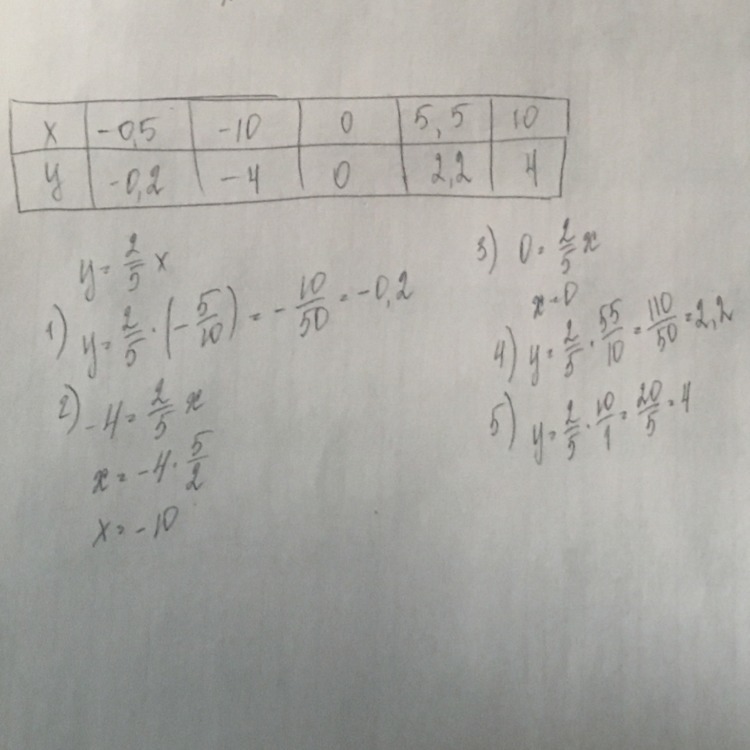 x -0,5 -10 0 5,5 10
y -0,2 -4 0 2,2 4
y = 2/5 x
1) y = 2/5 · (-5/10) = -10/50 = -0,2
2) -4 = 2/5 x
x = -4 · 5/2
x = -10
3) 0 = 2/5 x
x = 0
4) y = 2/5 · 55/10 = 110/50 = 2,2
5) y = 2/5 · 10/1 = 20/5 = 4